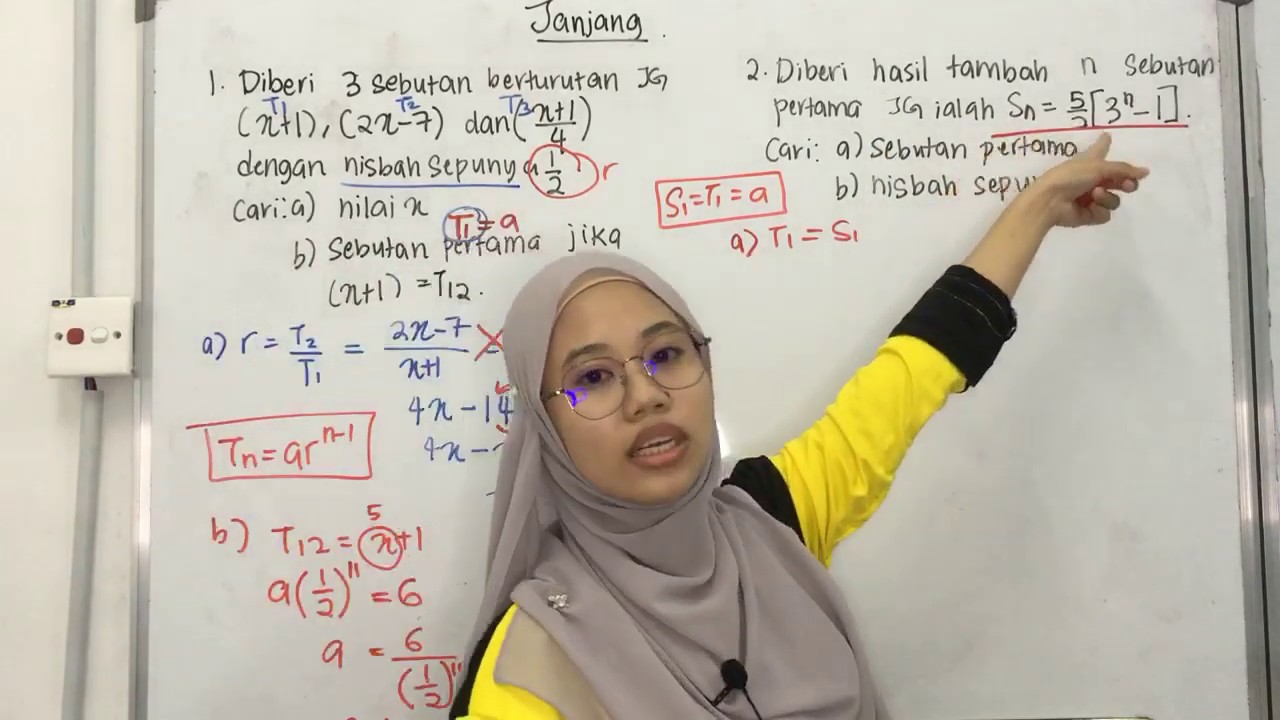 Janjang
1. Diberi 3 sebutan berturutan JG
T1 T2 T3
(x+1), (2x-7) dan (x+1/4)
dengan nisbah sepuny 1/2 r
Cari: a) nilai x
T1 = a
b) Sebutan pertama jika
(x+1) = T12.
a) r = T2/T1 = 2x-7/x+1
4x - 14
4x -
Tn = ar^n-1
b) T12 = x+1
5
a(1/2)^11 = 6
a = 6/(1/2)^11
2. Diberi hasil tambah n sebutan
pertama JG ialah Sn = 5/2[3^n - 1].
Cari: a) sebutan pertama
b) nisbah
S1 = T1 = a
a) T1 = S1